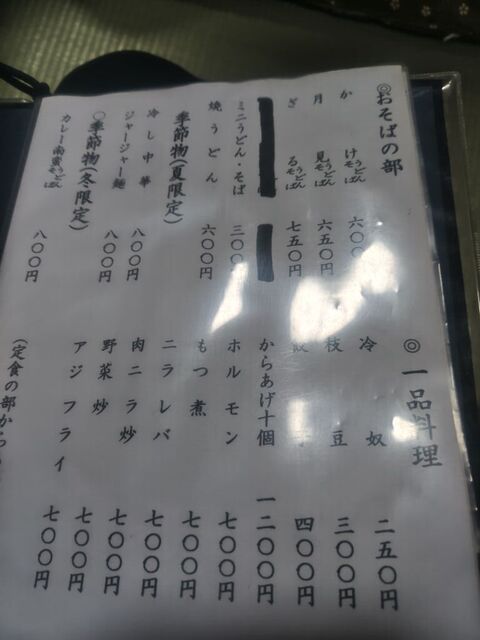 ◎おそばの部
かけ うどん そば 六〇〇
月見 うどん そば 六五〇円
ざる うどん そば 七五〇円
ミニうどん・そば 三〇〇
焼うどん 六〇〇円
季節物(夏限定)
冷し中華 八〇〇円
ジャージャー麺 八〇〇円
○季節物(冬限定)
カレー南蛮 うどん そば 八〇〇円
◎一品料理
冷奴 二五〇円
枝豆 三〇〇円
四〇〇円
からあげ十個 一二〇〇円
ホルモン 七〇〇円
もつ煮 七〇〇円
ニラレバ 七〇〇円
肉ニラ炒 七〇〇円
野菜炒 七〇〇円
アジフライ 七〇〇円
(定食の部から